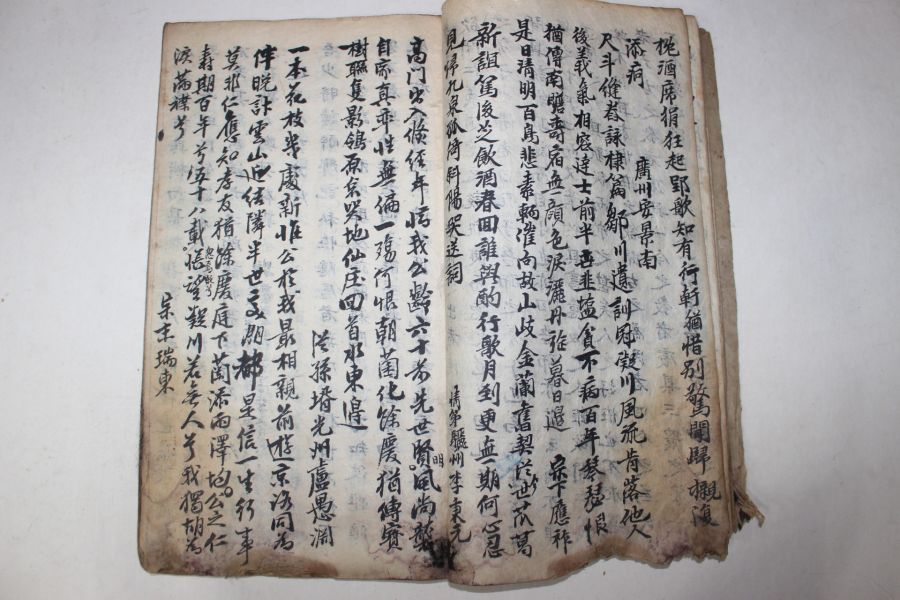 桅酒席狷狂起郢歌知有行軒猶惜別驚聞歸櫬復
添痾　廣州安景南
尺斗縫者詠棣篇鄒川遺訓冠凝川風流肯落他人
後義氣相容達士前半畝韭塩貧不病百年琴瑟恨
猶傳南瞻壽宿無顔色淚灑丹旌暮日邊　宗下應祚
是日清明百鳥悲素輀催向故山岐金蘭舊契從世瓜葛
新誼篤後芝飮酒春回誰與酌行歌月到更無期何心忍
見歸九泉孤倚斜陽哭送詞　情弟驪州李東元
高門出入倏經年惜我公齡六十前先世賢風尚襲
自家真率性無偏一殤何恨朝蘭化餘慶猶傳寶
樹聯隻影鴒原哀哭地仙庄回首水東邊
從孫壻光州盧愚潤
一本花枝半處新惟公於我最相親前遊京洛同爲
伴晩計雲山近結隣半世文朋都是信一生行事
莫非仁應知孝友猶餘慶庭下蘭添雨澤均公之仁
壽期百年兮五十八載悵望凝川若無人兮我獨胡爲
淚滿襟兮
宗末瑞東